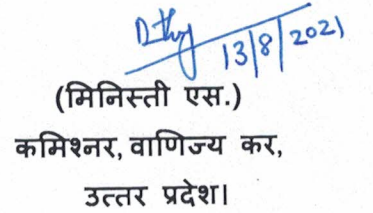 13/8/2021
(मिनिस्ती एस.)
कमिश्नर, वाणिज्य कर,
उत्तर प्रदेश।